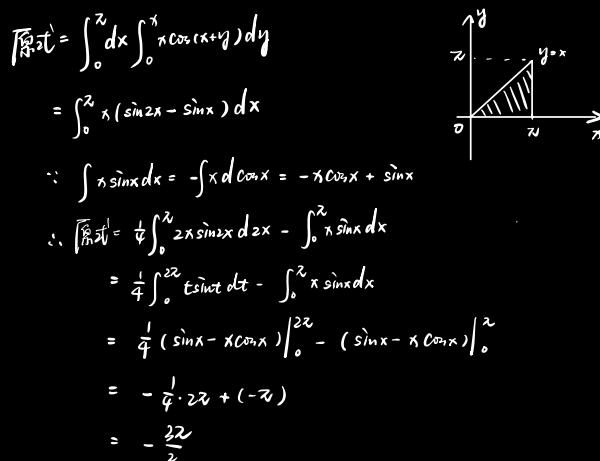 原式 = ∫₀^π dx ∫₀^x x cos(x+y) dy
= ∫₀^π x (sin2x - sinx) dx
∵ ∫ x sinx dx = -∫ x d cosx = -x cosx + sinx
∴ 原式 = 1/4 ∫₀^π 2x sin2x d2x - ∫₀^π x sinx dx
= 1/4 ∫₀^2π t sint dt - ∫₀^π x sinx dx
= 1/4 (sinx - x cosx) |₀^2π - (sinx - x cosx) |₀^π
= -1/4 · 2π + (-π)
= -3π/2
y
π
y=x
0
π
x